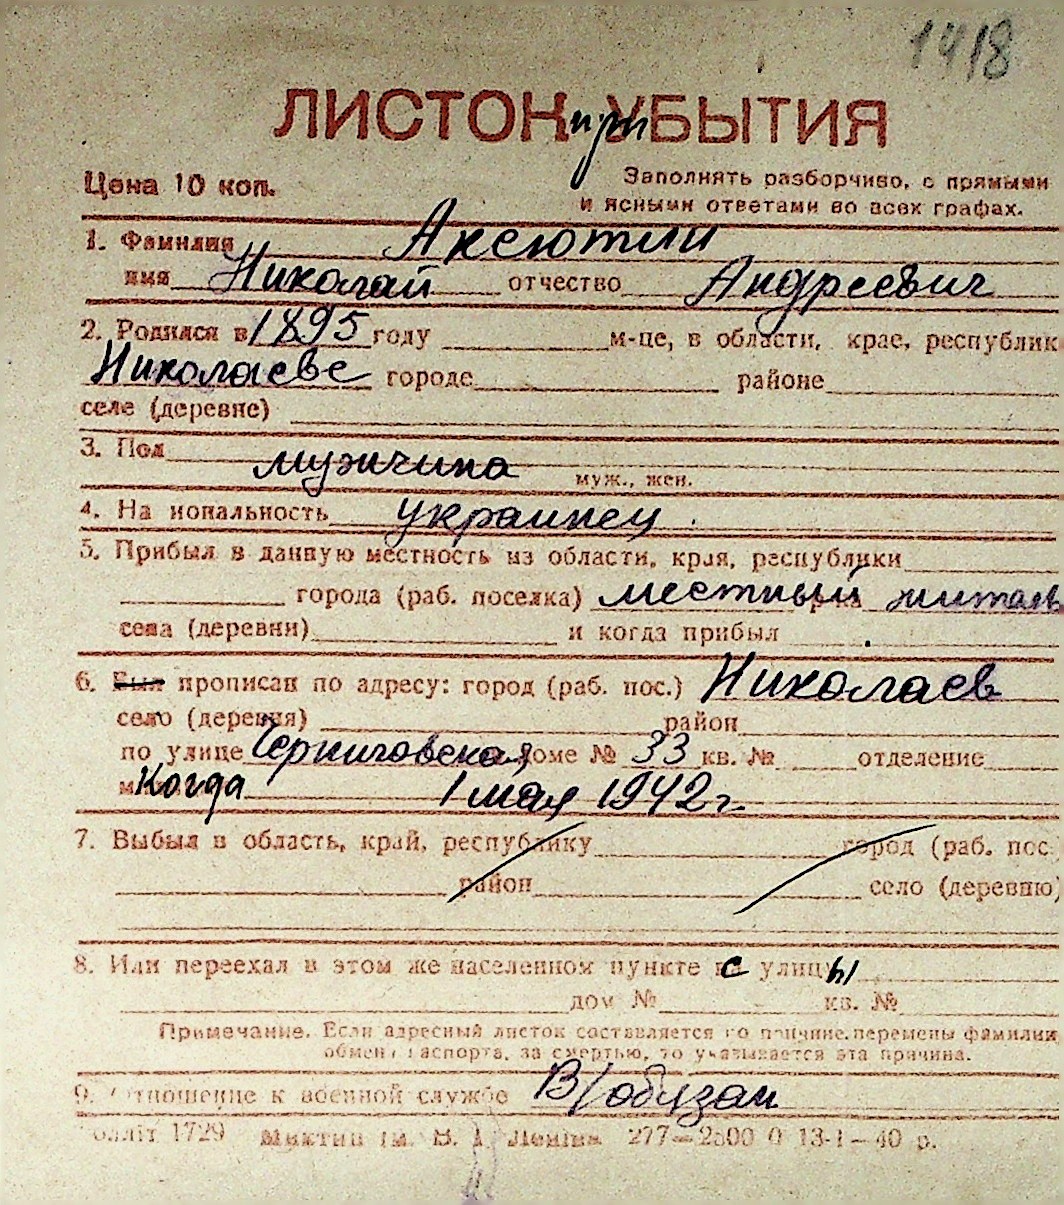 1418
ЛИСТОК при УБЫТИЯ
Цена 10 коп.
Заполнять разборчиво, с прямыми
и ясными ответами во всех графах.
1. Фамилия Аксютин
имя Николай отчество Андреевич
2. Родился в 1895 году м-це, в области, крае, республик
Николаеве городе районе
селе (деревне)
3. Пол мужчина муж., жен.
4. На иональность украинец.
5. Прибыл в данную местность из области, края, республики
города (раб. поселка) местный житель
села (деревни) и когда прибыл
6. Был прописан по адресу: город (раб. пос.) Николаев
село (деревня) район
по улице Черниговская доме № 33 кв. № отделение
Когда 1 мая 1942 г.
7. Выбыл в область, край, республику город (раб. пос.
район село (деревню)
8. Или переехал в этом же населенном пункте с улицы
дом № кв. №
Примечание. Если адресный листок составляется по причине перемены фамилии
обмена паспорта, за смертью, то указывается эта причина.
9. Отношение к военной службе В/обязан
1729 В. І. Леніна 277—2500 0 13-I—40 р.